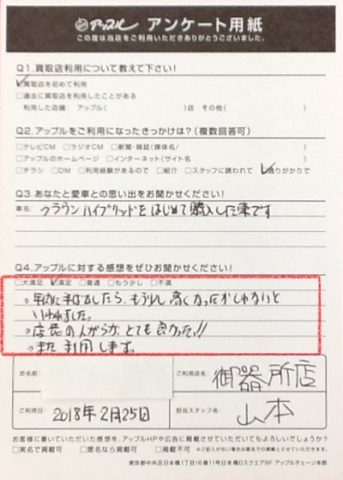 アップル アンケート用紙
この度は当店をご利用いただきありがとうございました。
Q1.買取店利用について教えて下さい!
☑買取店を初めて利用
□過去に買取店を利用したことがある
利用した店舗 アップル( )店 その他( )
Q2.アップルをご利用になったきっかけは?(複数回答可)
□テレビCM □ラジオCM □新聞・雑誌(媒体名/ )
□アップルのホームページ □インターネット(サイト名 )
□チラシ □DM □利用経験があるので □紹介 □スタッフに誘われて ☑通りがかりで
Q3.あなたと愛車との思い出をお聞かせください!
車名: クラウンハイブリッドをはじめて購入した車です
Q4.アップルに対する感想をぜひお聞かせください!
□大満足 ☑満足 □普通 □もう少し □不満
もう少し高くなったかしれないと
いわれました。
店長の人がらがとても良かった!!
また利用します。
お名前
ご利用店名 御器所店
ご利用日 2018年2月25日
担当スタッフ名 山本
お客様に書いていただいた感想を、アップルHPや広告に掲載させていただいてもよろしいでしょうか?
□実名で掲載可 □匿名なら掲載可 □掲載不可
東京都中央区日本橋1丁目16番11号日本橋Dスクエア9F アップルチェーン本部